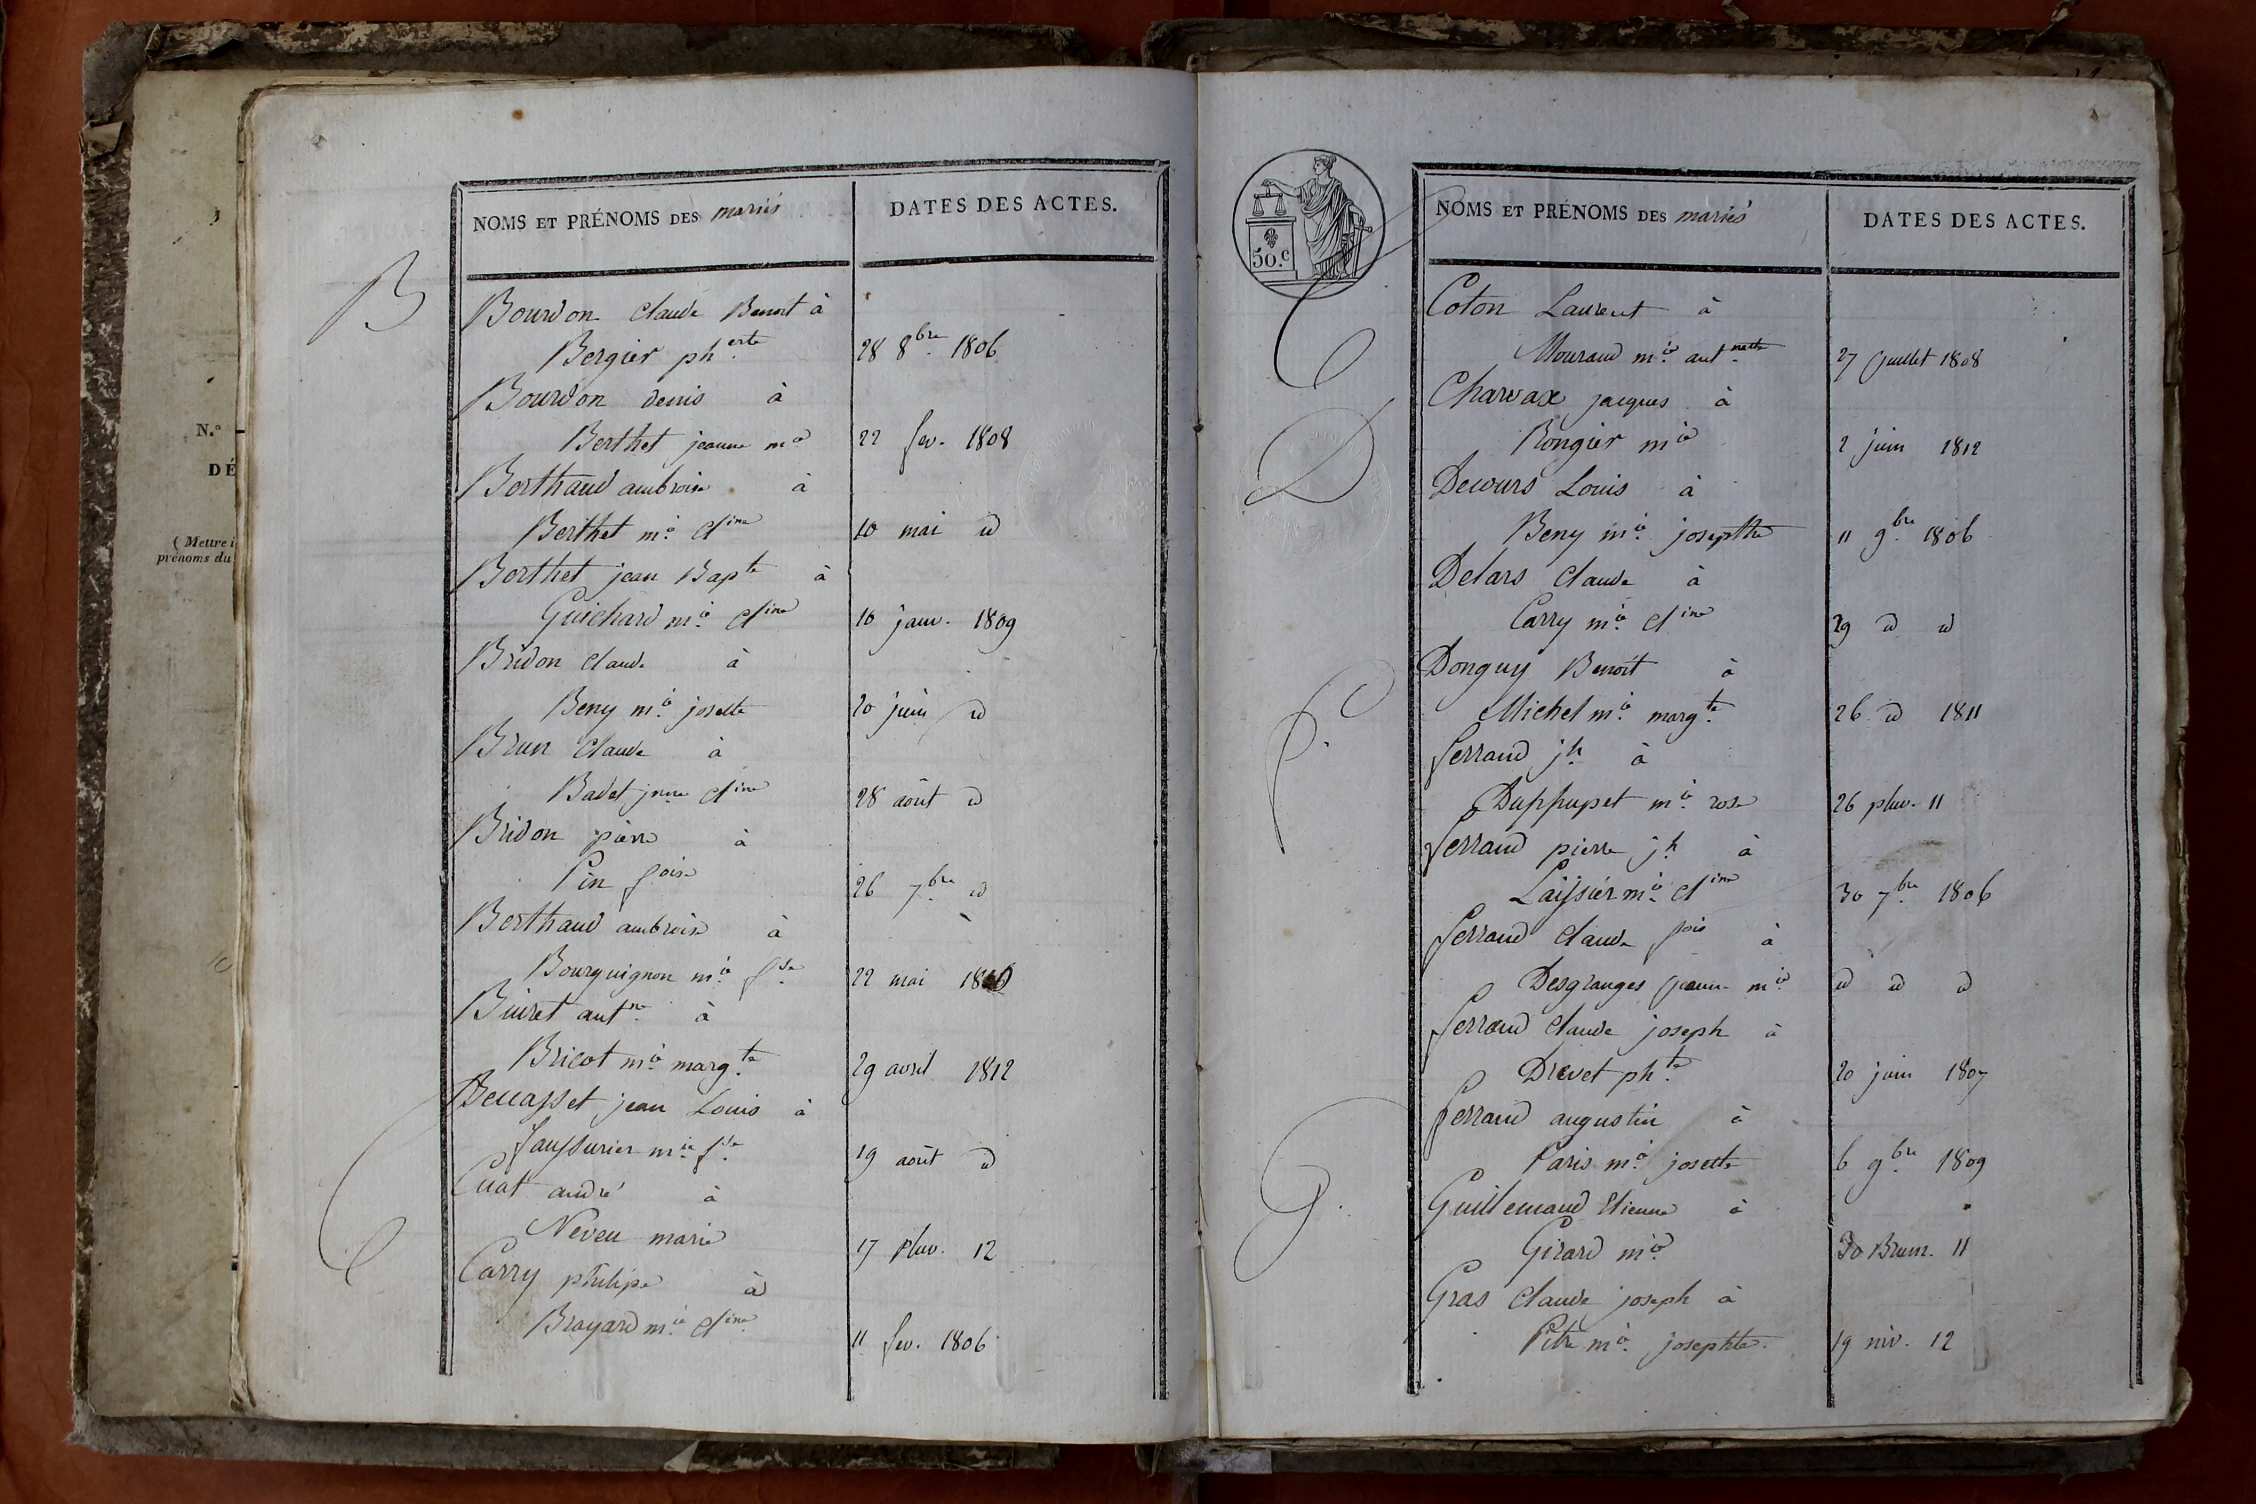 N.º
DÉ
(Mettre i
prénoms du
NOMS ET PRÉNOMS DES mariés
DATES DES ACTES.
B
Bourdon Claude Benoit à
Bergier ph.erte 28 8bre 1806
Bourdon denis à
Berthet jeanne mie 22 fev. 1808
Berthaud ambroise à
Berthet mie Cline 10 mai id
Berthet jean Bapte à
Guichard mie Cline 10 janv. 1809
Bridon Claude à
Beny mie josette 20 juin id
Brun Claude à
Badet jnne Cline 28 août id
Bridon pierre à
Pin foise 26 7bre id
Berthaud ambroise à
Bourguignon mie fse 22 mai 1810
Buiret antne à
Bricot mie margte 29 avril 1812
Beccasset jean Louis à
Jaussurier mie fse 19 août id
C
Cuat andré à
Neveu marie 17 pluv. 12
Carry philipe à
Brayard mie Cline 11 fev. 1806
50.c
NOMS ET PRÉNOMS DES mariés
DATES DES ACTES.
C
Coton Laurent à
Mouraud mie antnette 27 juillet 1808
Charvax jacques à
Rongier mie 2 juin 1812
D
Decours Louis à
Beny mie josephte 11 9bre 1806
Delars Claude à
Carry mie Cline 29 id id
Donguy Benoit à
Michel mie margte 26 id 1811
F.
ferraud jh à
Duppupet mie rose 26 pluv. 11
ferraud pierre jh à
Laissier mie Cline 30 7bre 1806
ferraud Claude fois à
Desgranges jeanne mie id id id
ferraud Claude joseph à
Drevet phte 20 juin 1807
ferraud augustin à
Paris mie josette 6 9bre 1809
G.
Guillemaud Etienne à
Girard mie 30 Brum. 11
Gras Claude joseph à
Pitre mie josephte. 19 niv. 12